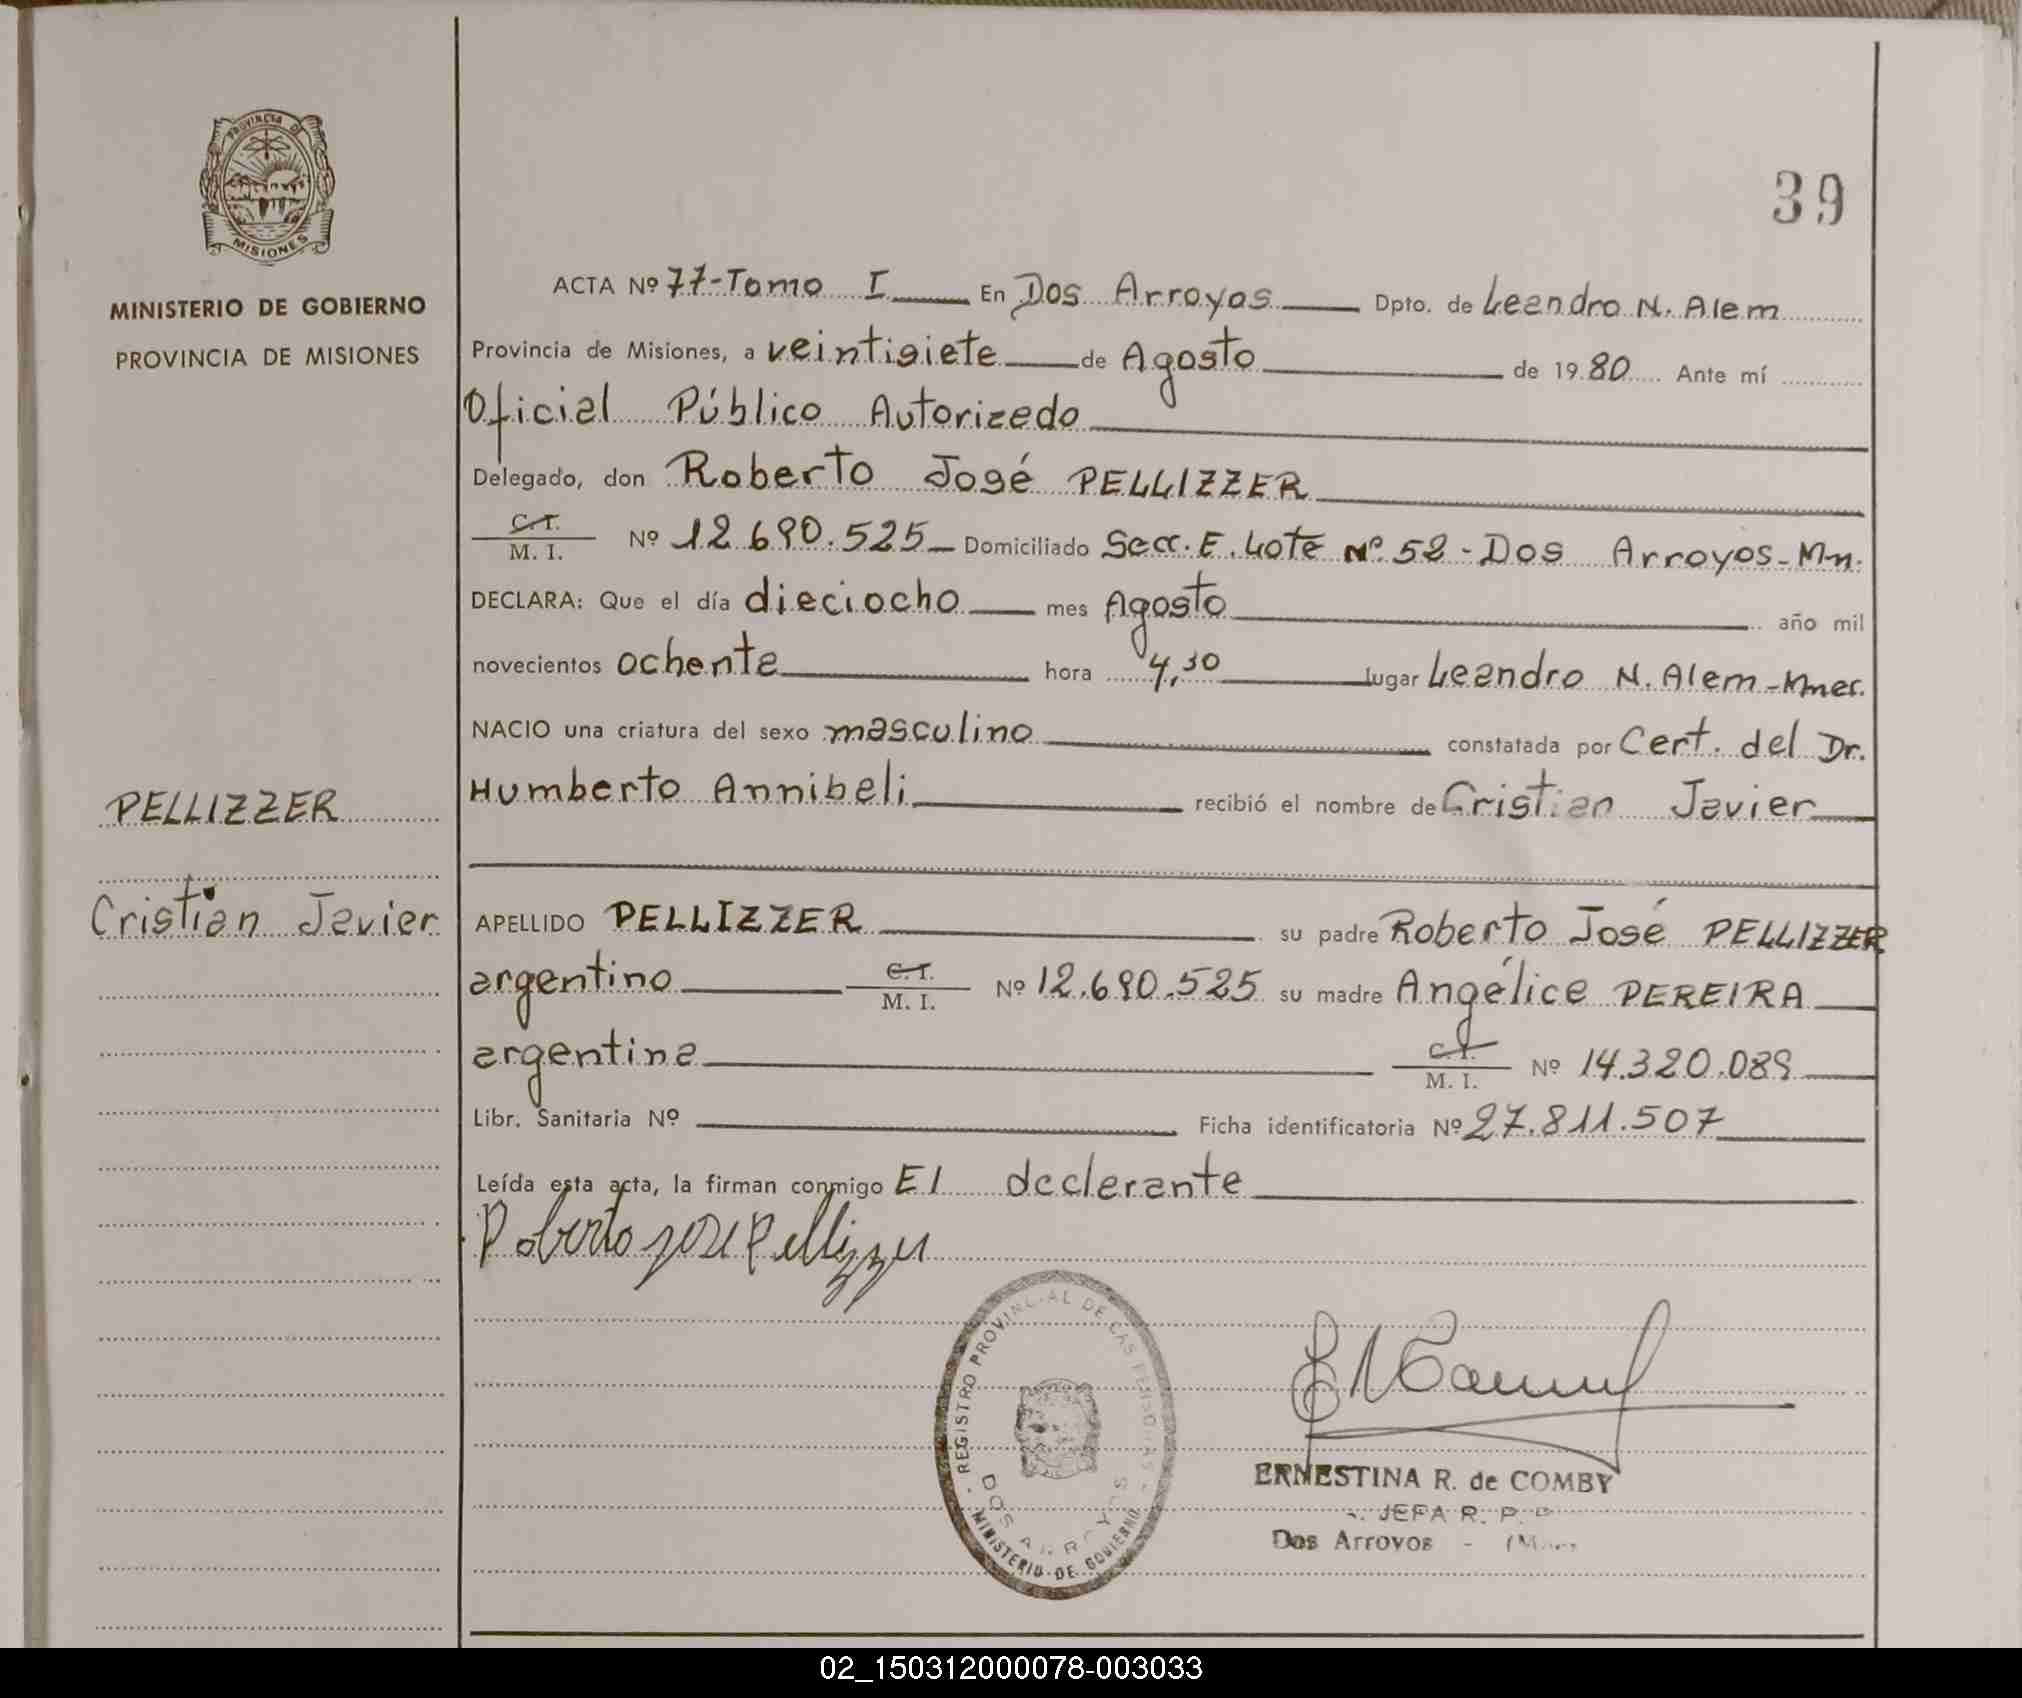 PROVINCIA DE
MISIONES
MINISTERIO DE GOBIERNO
PROVINCIA DE MISIONES
PELLIZZER
Cristian Javier
39
ACTA Nº 77-Tomo I En Dos Arroyos Dpto. de Leandro N. Alem
Provincia de Misiones, a veintisiete de Agosto de 1980 Ante mí
Oficial Público Autorizado
Delegado, don Roberto José PELLIZZER
C.I.
M. I. Nº 12.690.525 Domiciliado Secc. E. Lote Nº 52 - Dos Arroyos - Mn.
DECLARA: Que el día dieciocho mes Agosto año mil
novecientos ochenta hora 4,30 lugar Leandro N. Alem - Mnes.
NACIO una criatura del sexo masculino constatada por Cert. del Dr.
Humberto Annibeli recibió el nombre de Cristian Javier
APELLIDO PELLIZZER su padre Roberto José PELLIZZER
argentino C.I. M. I. Nº 12.690.525 su madre Angélica PEREIRA
argentina C.I. M. I. Nº 14.320.089
Libr. Sanitaria Nº Ficha identificatoria Nº 27.811.507
Leída esta acta, la firman conmigo El declarante
Roberto José Pellizzer
REGISTRO PROVINCIAL DE LAS PERSONAS
DOS ARROYOS
MINISTERIO DE GOBIERNO
ERNESTINA R. de COMBY
JEFA R. P.
Dos Arroyos -
02_150312000078-003033